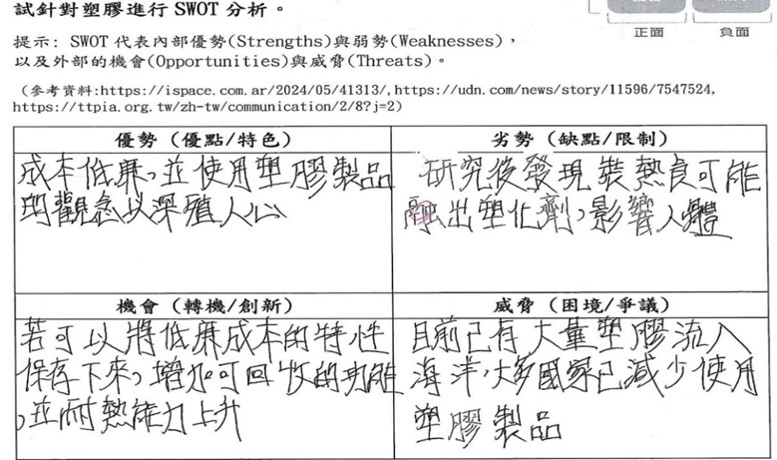 試針對塑膠進行 SWOT 分析。
正面 負面
提示: SWOT 代表內部優勢(Strengths)與弱勢(Weaknesses),
以及外部的機會(Opportunities)與威脅(Threats)。
(參考資料:https://ispace.com.ar/2024/05/41313/,https://udn.com/news/story/11596/7547524,
https://ttpia.org.tw/zh-tw/communication/2/8?j=2)
優勢 (優點/特色)
成本低廉,並使用塑膠製品
的觀念以深殖人心
劣勢 (缺點/限制)
研究後發現裝熱食可能
融出塑化劑,影響人體
機會 (轉機/創新)
若可以將低廉成本的特性
保存下來,增加可回收的功能
,並耐熱能力上升
威脅 (困境/爭議)
目前已有大量塑膠流入
海洋,大多國家已減少使用
塑膠製品